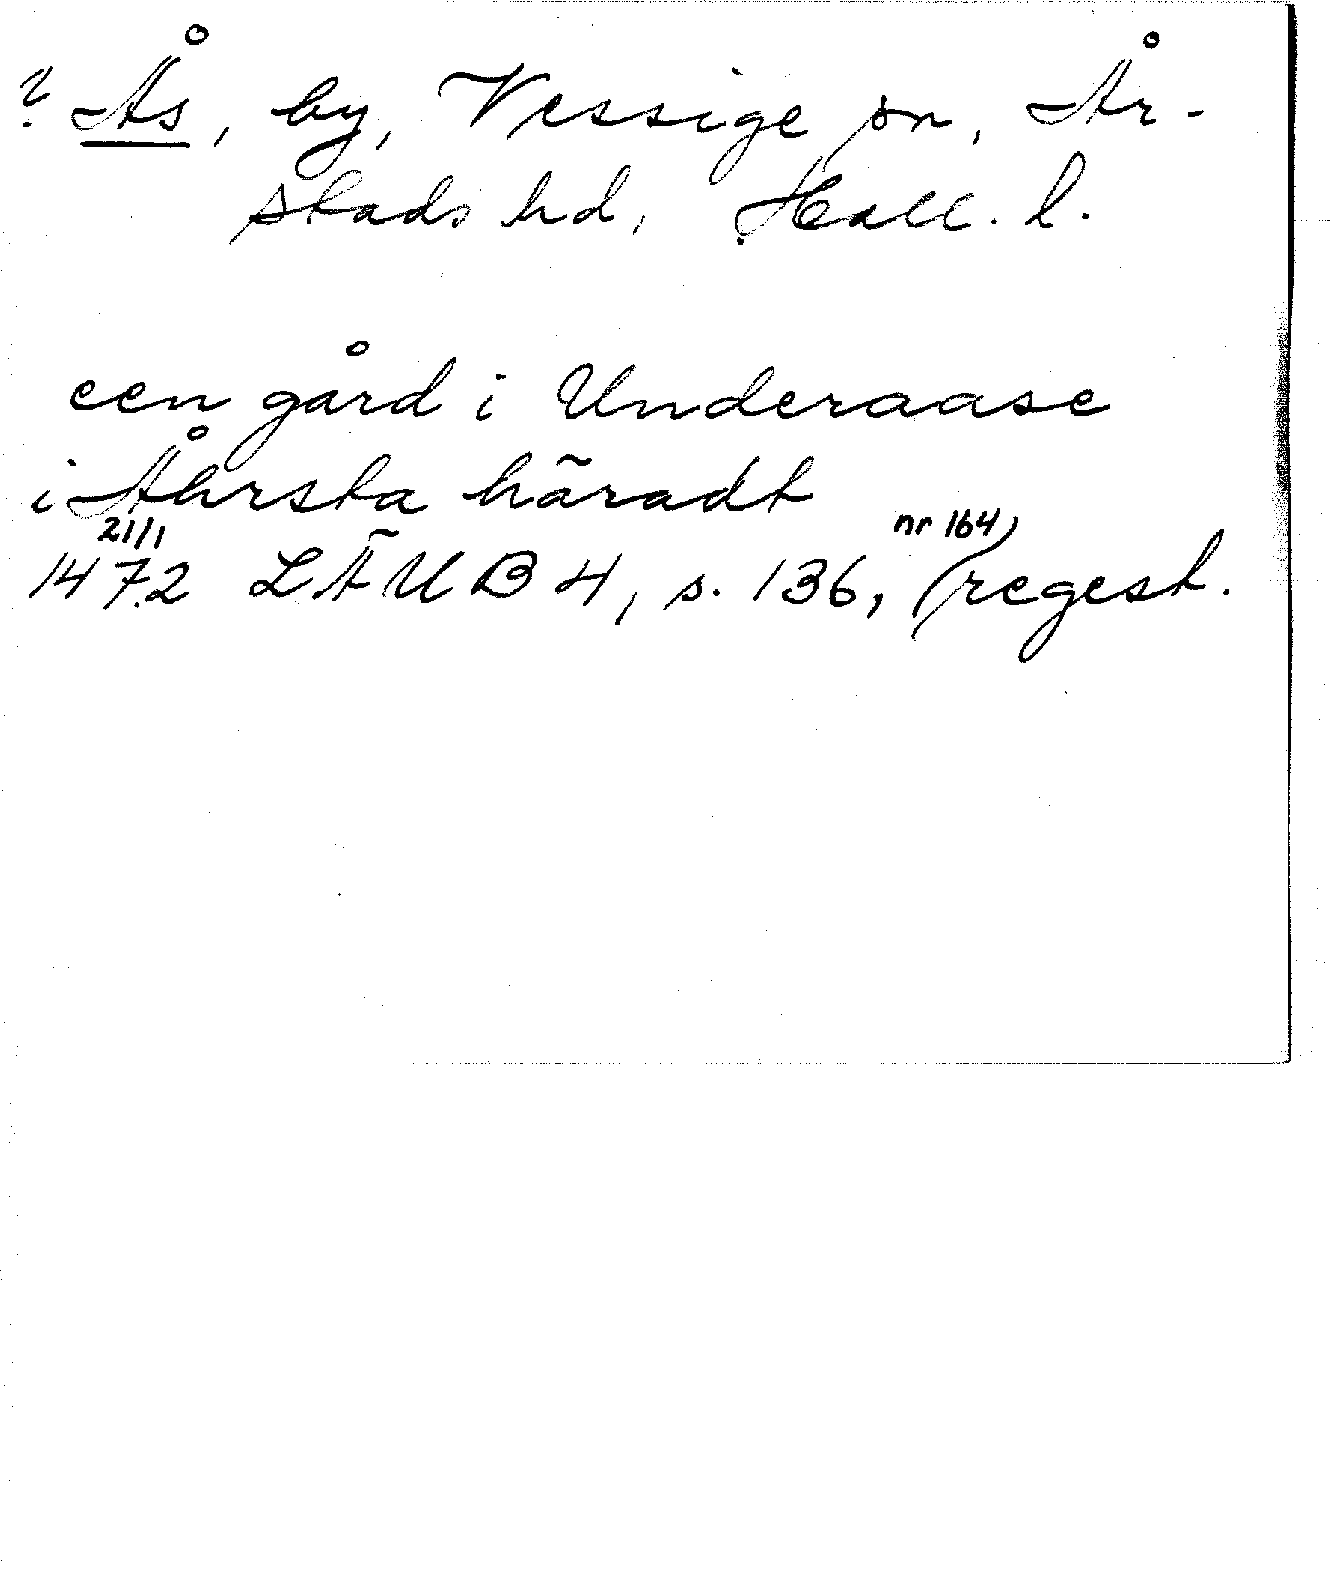 ? Ås, by, Vessige sn, År-
stads hd, Hall. l.
een gård i Underaase
i Åhrsta häradt
21/1 nr 164)
1472 LÄUB 4, s. 136, (regest.